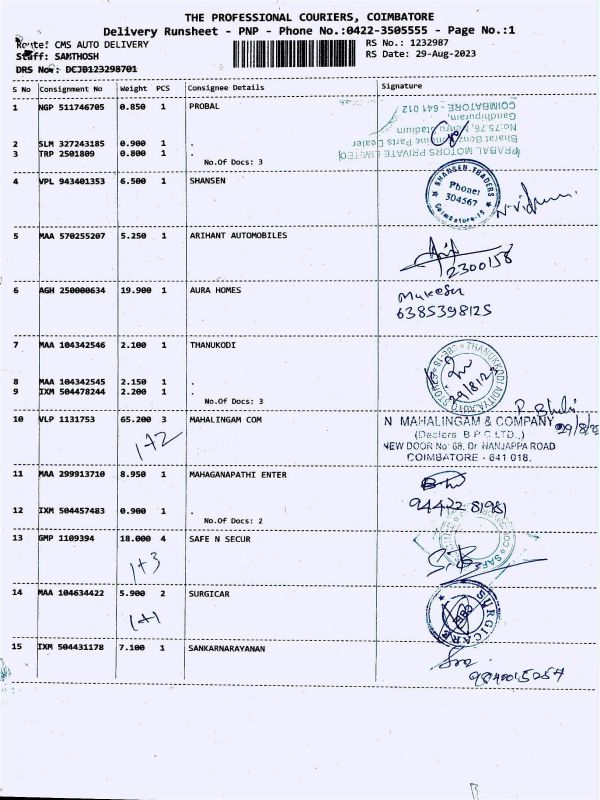 THE PROFESSIONAL COURIERS, COIMBATORE
Delivery Runsheet - PNP - Phone No.:0422-3505555 - Page No.:1
Route: CMS AUTO DELIVERY RS No.: 1232987
Staff: SANTHOSH RS Date: 29-Aug-2023
DRS No: DCJB123298701
S No Consignment No Weight PCS Consignee Details Signature
1 NGP 511746705 0.850 1 PROBAL
PRABAL MOTORS PRIVATE LIMITED
Bharat Benz Parts Dealer
No:75,76, Nehru Stadium
Gandhipuram,
COIMBATORE - 641 012
2 SLM 327243185 0.900 1 .
3 TRP 2501809 0.800 1 .
No.Of Docs: 3
4 VPL 943401353 6.500 1 SHANSEN
SHANSEN TRADERS
Phone:
304567
Coimbatore-18
5 MAA 570255207 5.250 1 ARIHANT AUTOMOBILES
2300158
6 AGH 250000634 19.900 1 AURA HOMES
Mukesh
6385398125
7 MAA 104342546 2.100 1 THANUKODI
8 MAA 104342545 2.150 1 .
9 IXM 504478244 2.200 1 .
No.Of Docs: 3
29/8/2
10 VLP 1131753 65.200 3 MAHALINGAM COM
1+2
N MAHALINGAM & COMPANY
(Dealers B P C LTD.,)
NEW DOOR No: 68, Dr NANJAPPA ROAD
COIMBATORE - 641 018.
29/8/2
11 MAA 299913710 8.950 1 MAHAGANAPATHI ENTER
94422 81981
12 IXM 504457483 0.900 1 .
No.Of Docs: 2
13 GMP 1109394 18.000 4 SAFE N SECUR
1+3
14 MAA 104634422 5.900 2 SURGICAR
1+1
SURGICARE
15 IXM 504431178 7.100 1 SANKARNARAYANAN